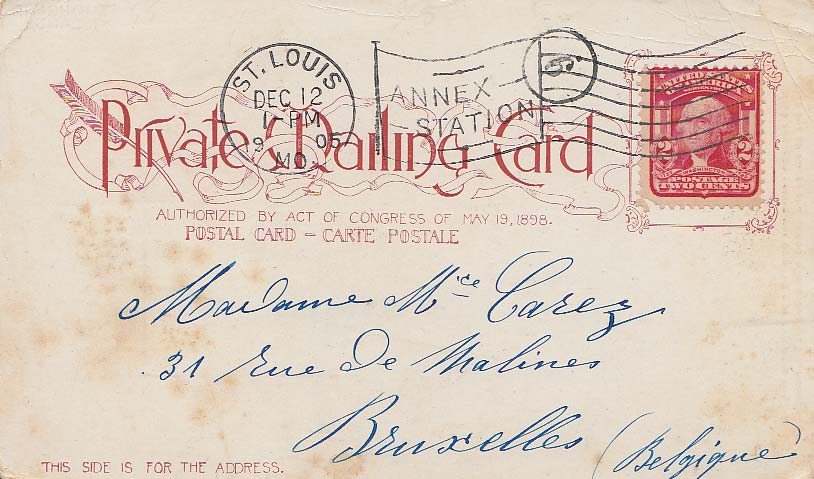 ST. LOUIS
DEC 12
1-PM
19 05
MO.
ANNEX
STATION
6
UNITED STATES
OF AMERICA
2 2
WASHINGTON
POSTAGE
TWO CENTS
Private Mailing Card
AUTHORIZED BY ACT OF CONGRESS OF MAY 19, 1898.
POSTAL CARD – CARTE POSTALE
Madame Mce Carez
31 Rue de Malines
Bruxelles
(Belgique)
THIS SIDE IS FOR THE ADDRESS.